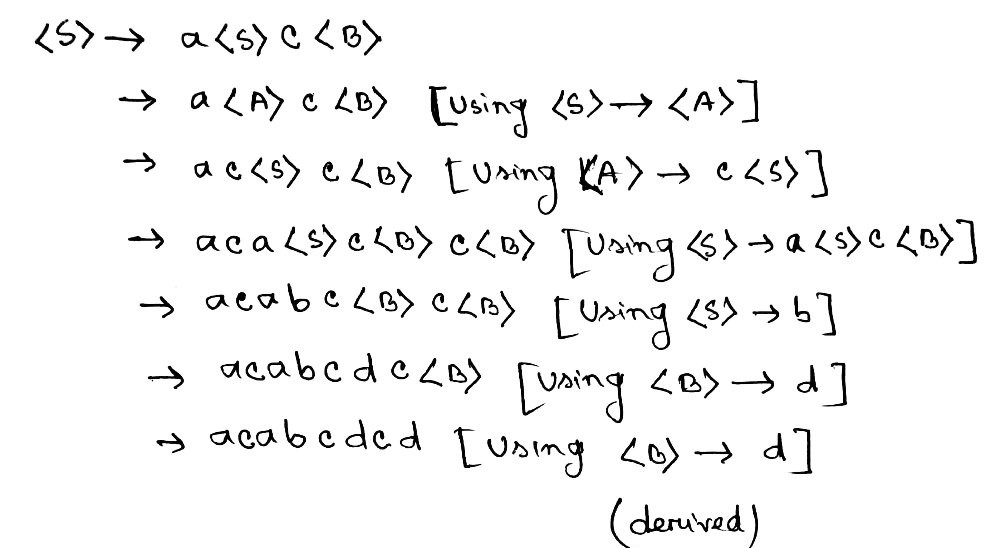 <S> → a <S> c <B>
→ a <A> c <B> [Using <S> → <A>]
→ a c <S> c <B> [Using <A> → c <S>]
→ a c a <S> c <B> c <B> [Using <S> → a <S> c <B>]
→ a c a b c <B> c <B> [Using <S> → b]
→ a c a b c d c <B> [Using <B> → d]
→ a c a b c d c d [Using <B> → d]
(derived)